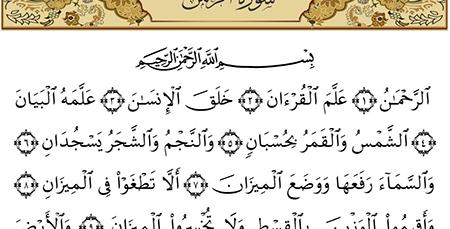 سورة الرحمن
بِسْمِ اللَّهِ الرَّحْمَٰنِ الرَّحِيمِ
الرَّحْمَٰنُ ﴿١﴾ عَلَّمَ الْقُرْءَانَ ﴿٢﴾ خَلَقَ الْإِنسَٰنَ ﴿٣﴾ عَلَّمَهُ الْبَيَانَ
﴿٤﴾ الشَّمْسُ وَالْقَمَرُ بِحُسْبَانٍ ﴿٥﴾ وَالنَّجْمُ وَالشَّجَرُ يَسْجُدَانِ ﴿٦﴾
وَالسَّمَآءَ رَفَعَهَا وَوَضَعَ الْمِيزَانَ ﴿٧﴾ أَلَّا تَطْغَوْا۟ فِى الْمِيزَانِ ﴿٨﴾
وَأَقِيمُوا۟ الْوَزْنَ بِالْقِسْطِ وَلَا تُخْسِرُوا۟ الْمِيزَانَ ﴿٩﴾ وَالْأَرْضَ